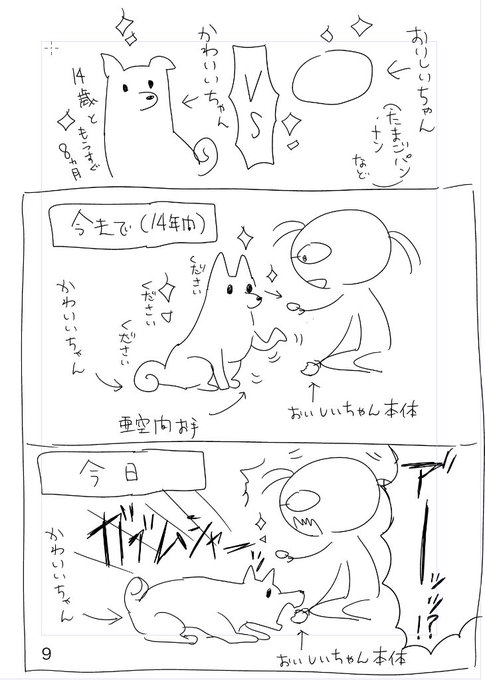 おいしいちゃん
(たまごパン
・ナン
など)
VS
かわいいちゃん
14歳と
もうすぐ
8ヵ月
今まで(14年間)
ください
ください
ください
かわいいちゃん
亜空間お手
おいしいちゃん本体
今日
アーーーッッ!?
ガブムシャー
かわいいちゃん
おいしいちゃん本体
9